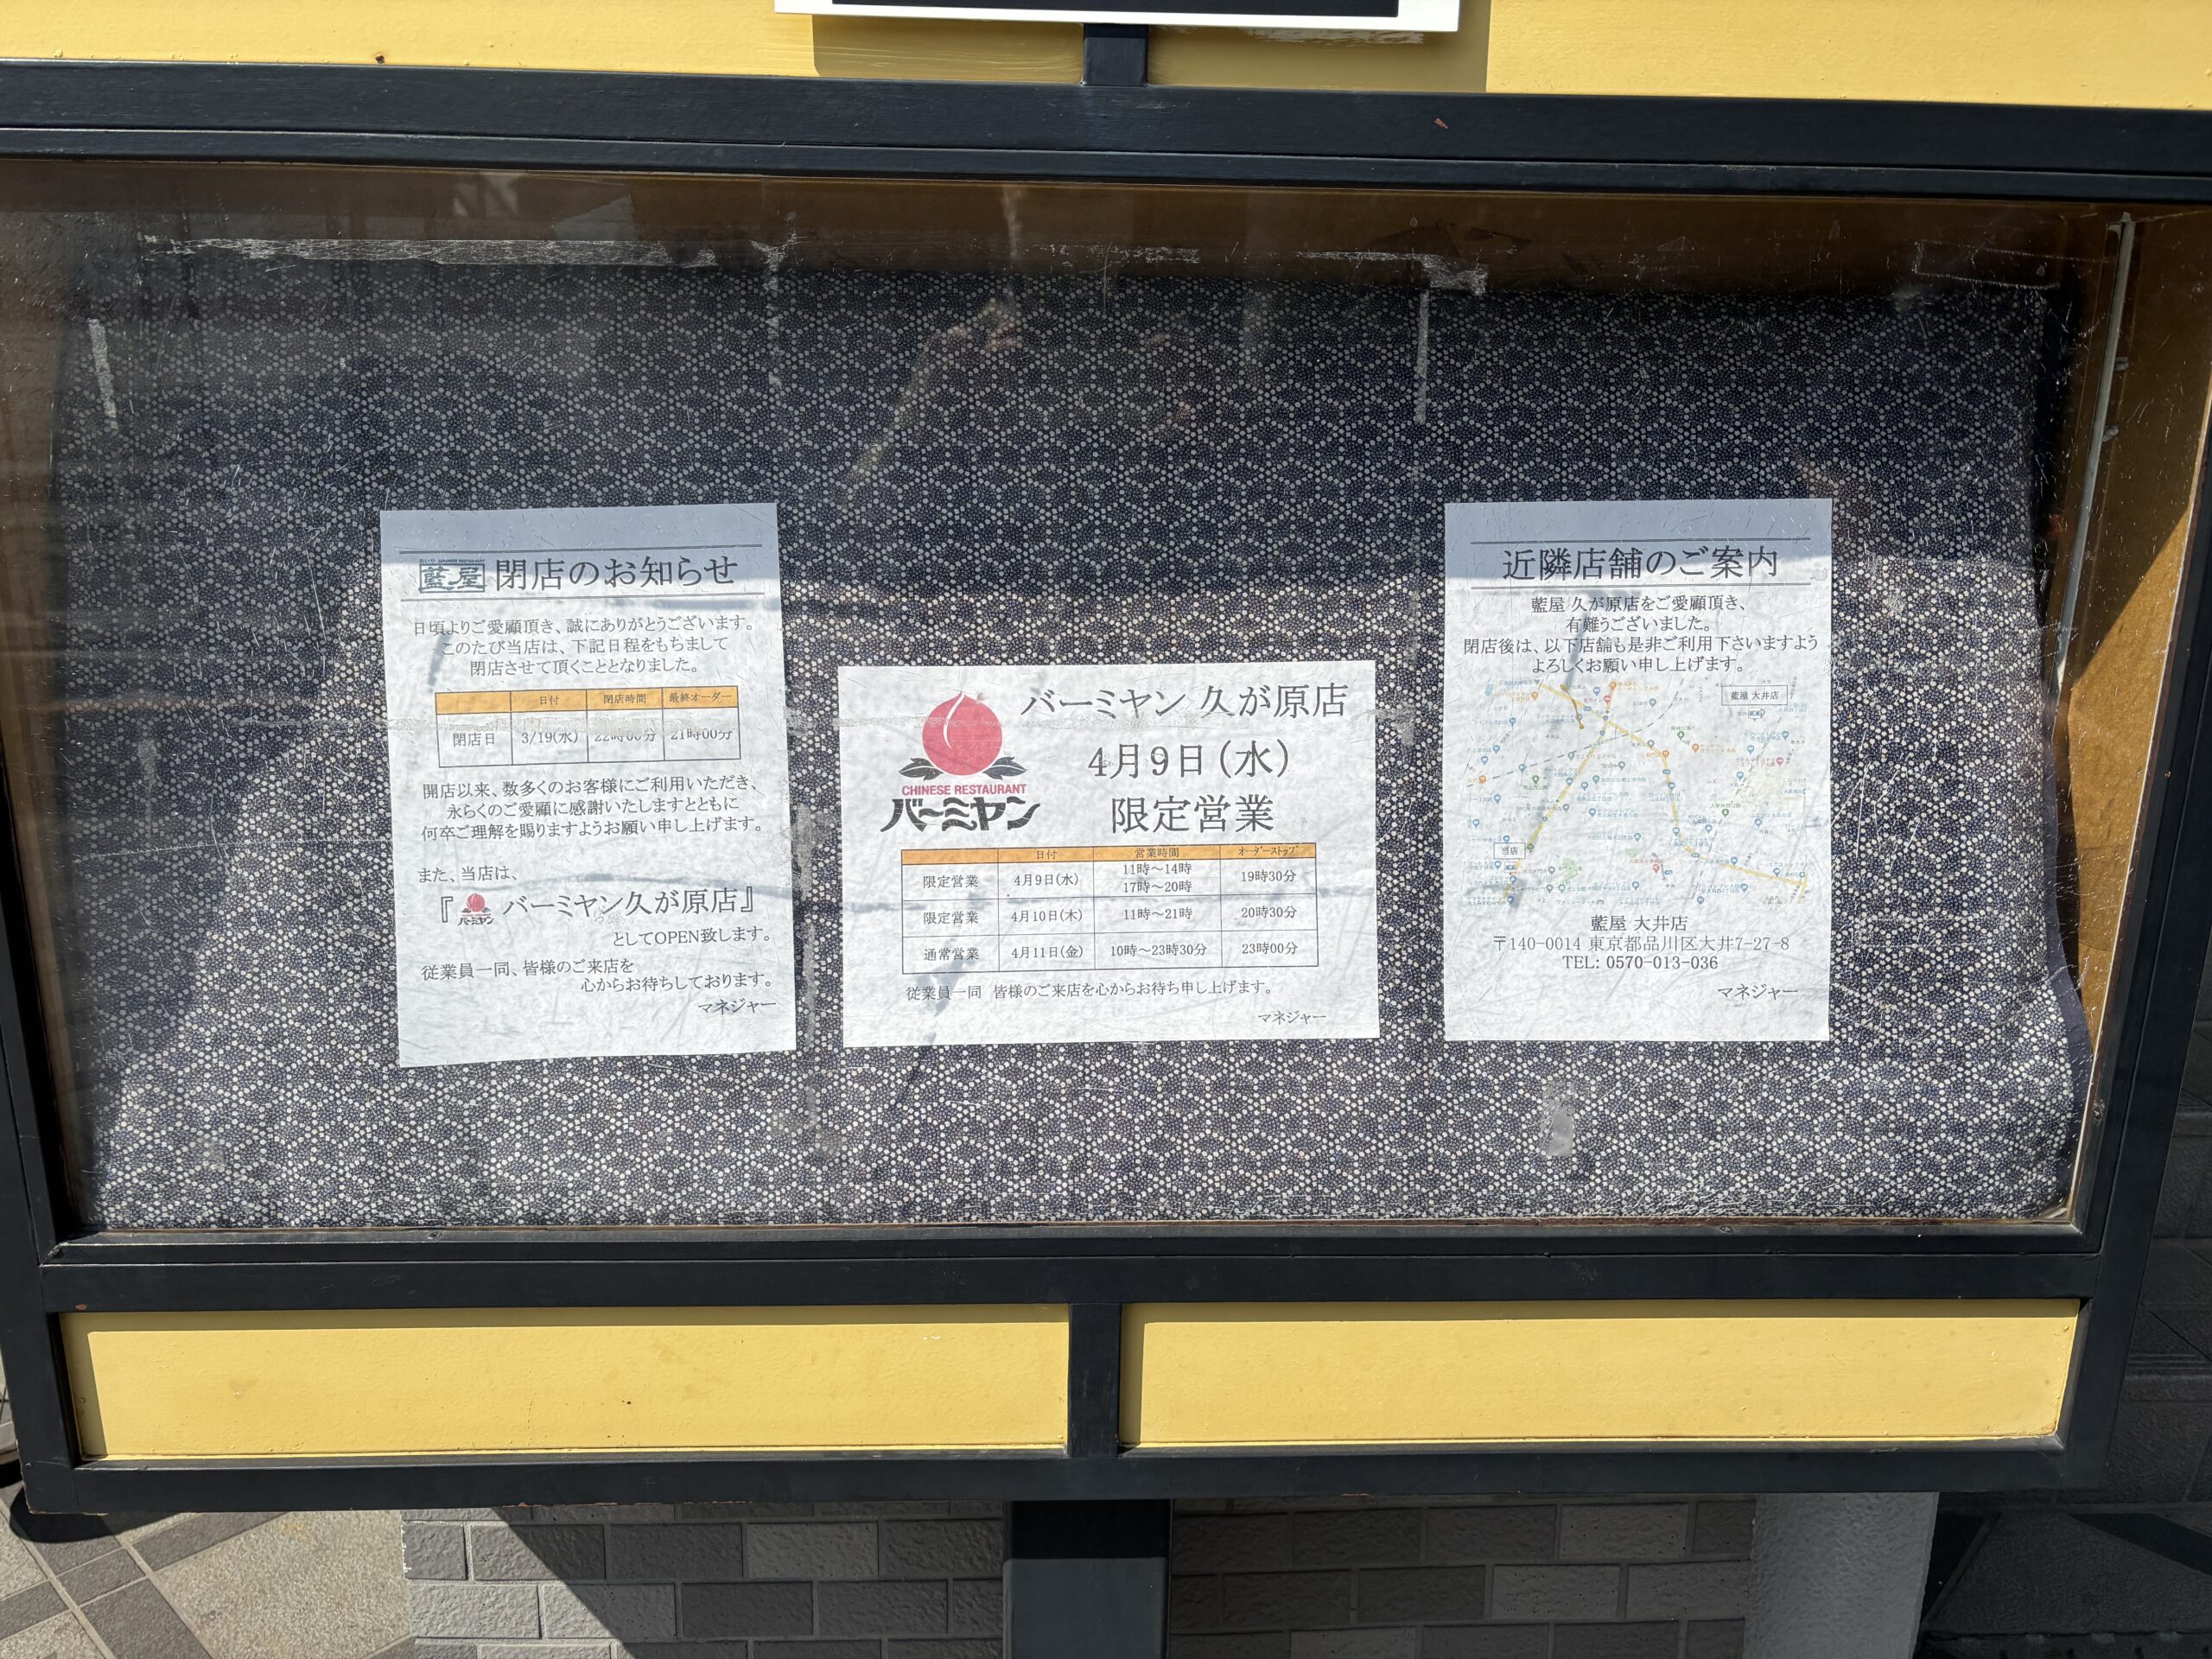 藍屋 閉店のお知らせ
日頃よりご愛顧頂き、誠にありがとうございます。
このたび当店は、下記日程をもちまして
閉店させて頂くこととなりました。
日付 閉店時間 最終オーダー
閉店日 3/19(水) 22時00分 21時00分
開店以来、数多くのお客様にご利用いただき、
永らくのご愛顧に感謝いたしますとともに
何卒ご理解を賜りますようお願い申し上げます。
また、当店は、
『バーミヤン バーミヤン久が原店』
としてOPEN致します。
従業員一同、皆様のご来店を
心からお待ちしております。
マネジャー
CHINESE RESTAURANT
バーミヤン
バーミヤン 久が原店
4月9日(水)
限定営業
日付 営業時間 オーダーストップ
限定営業 4月9日(水) 11時～14時 17時～20時 19時30分
限定営業 4月10日(木) 11時～21時 20時30分
通常営業 4月11日(金) 10時～23時30分 23時00分
従業員一同 皆様のご来店を心からお待ち申し上げます。
マネジャー
近隣店舗のご案内
藍屋 久が原店をご愛顧頂き、
有難うございました。
閉店後は、以下店舗も是非ご利用下さいますよう
よろしくお願い申し上げます。
藍屋 大井店
当店
藍屋 大井店
〒140-0014 東京都品川区大井7-27-8
TEL: 0570-013-036
マネジャー